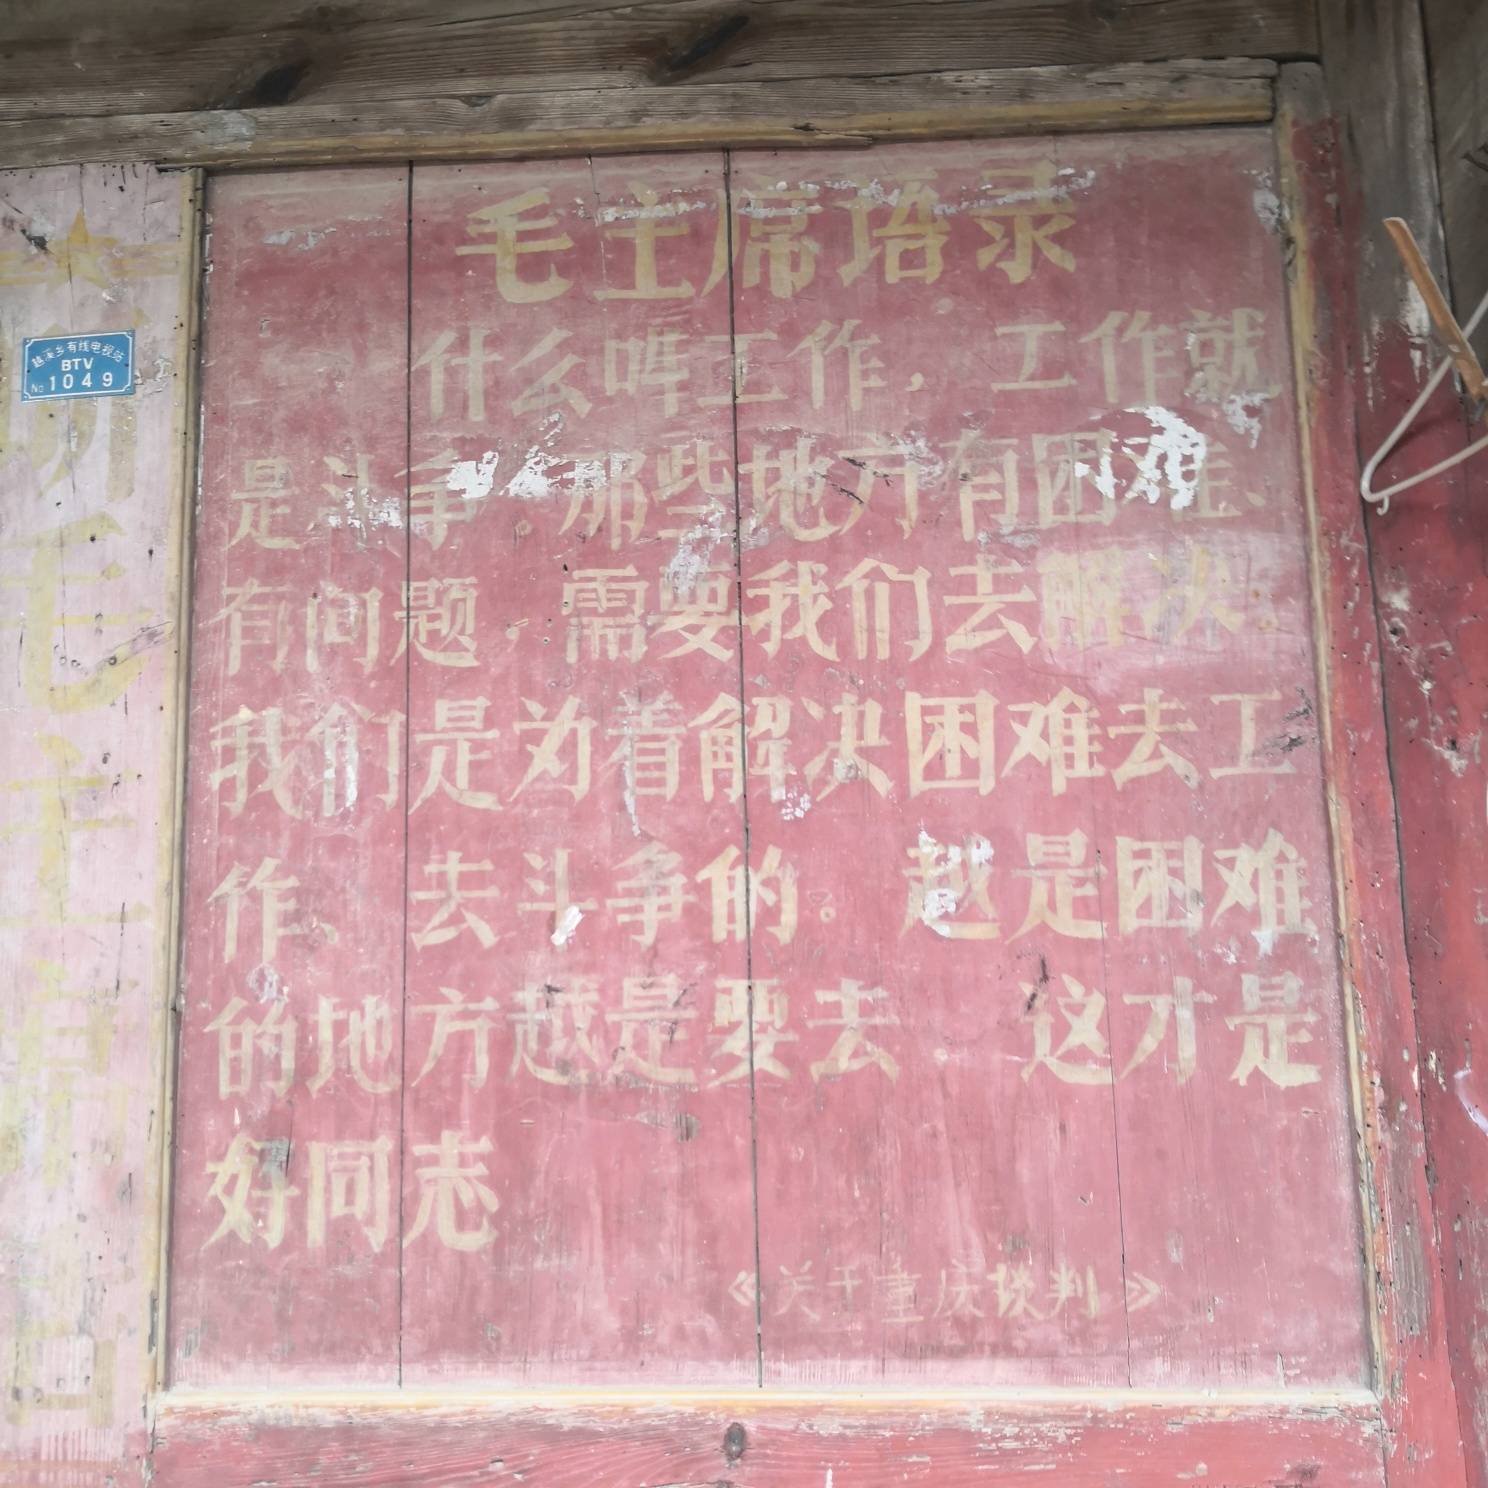 毛主席语录
什么叫工作，工作就
是斗争。那些地方有困难、
有问题，需要我们去解决
我们是为着解决困难去工
作、去斗争的。越是困难
的地方越是要去 这才是
好同志
《关于重庆谈判》
听毛主席
越溪乡有线电视站
BTV
No 1049